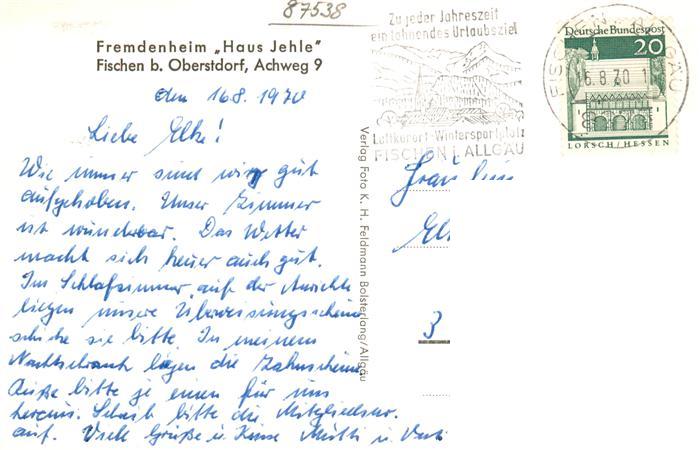 87538
Zu jeder Jahreszeit
ein lohnendes Urlaubsziel
Luftkurort - Wintersportplatz
FISCHEN i. ALLGÄU
FISCHEN ALLGÄU
16.8.70
Deutsche Bundespost
20
LORSCH/HESSEN
Fremdenheim „Haus Jehle"
Fischen b. Oberstdorf, Achweg 9
den 16.8. 1970
Liebe Elke!
Wie immer sind wir gut
aufgehoben. Unser Zimmer
ist wunderbar. Das Wetter
macht sich heuer auch gut.
Im Schlafzimmer auf der Anrichte
liegen unsere Überweisungsscheine
schicke sie bitte. In meinem
Nachtschrank liegen die Zahnscheine
fülle bitte je einen für uns
heraus. Schreib bitte die Mitgliedsnr.
auf. Viele Grüße u. Küsse Mutti u. Vati
Verlag Foto K. H. Feldmann Bolsterlang/Allgäu
Fräulein
El
3